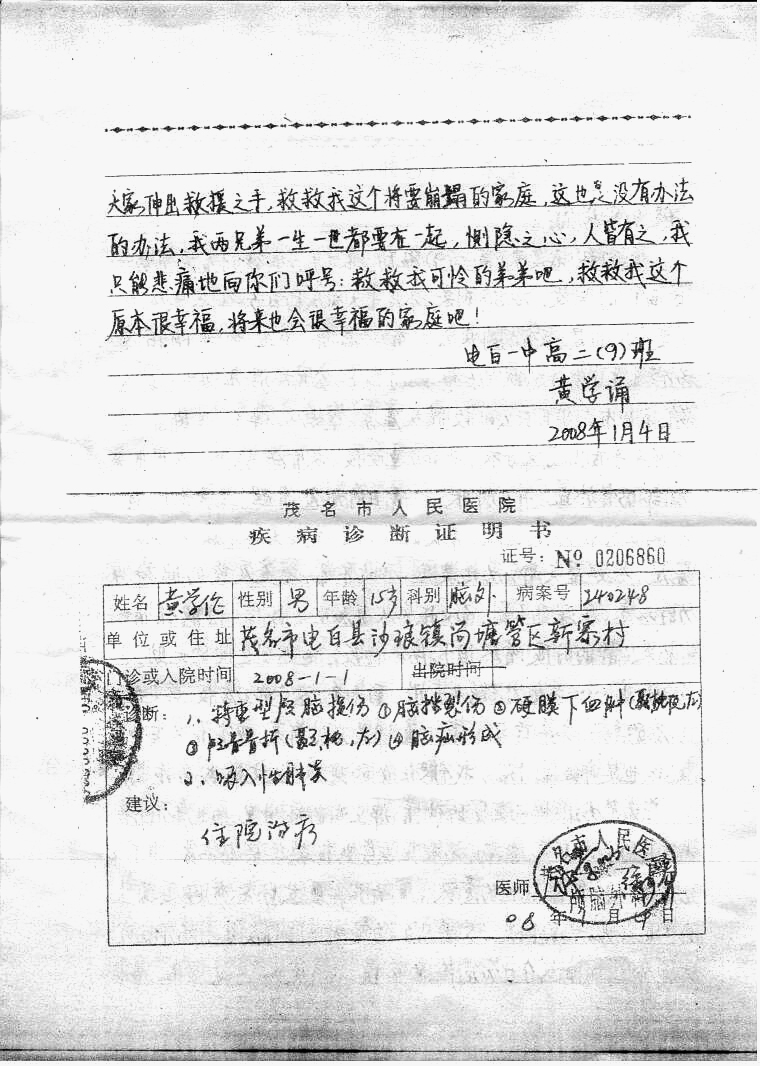 大家伸出救援之手，救救我这个将要崩塌的家庭，这也是没有办法
的办法，我两兄弟一生一世都要在一起，恻隐之心，人皆有之，我
只能悲痛地向你们呼号：救救我可怜的弟弟吧，救救我这个
原本很幸福，将来也会很幸福的家庭吧！
电白一中高二(9)班
黄学诵
2008年1月4日
茂名市人民医院
疾病诊断证明书
证号：No 0206860
姓名 黄学伦 性别 男 年龄 15岁 科别 脑外 病案号 240248
单位或住址 茂名市电白县沙琅镇尚塘管区新寨村
门诊或入院时间 2008-1-1 出院时间
诊断：1、特重型颅脑损伤 ①脑挫裂伤 ②硬膜下血肿
③颅骨骨折(颞、枕、左) ④脑疝形成
2、吸入性肺炎
建议：
住院治疗
茂名市人民医
医师
08年1月4日